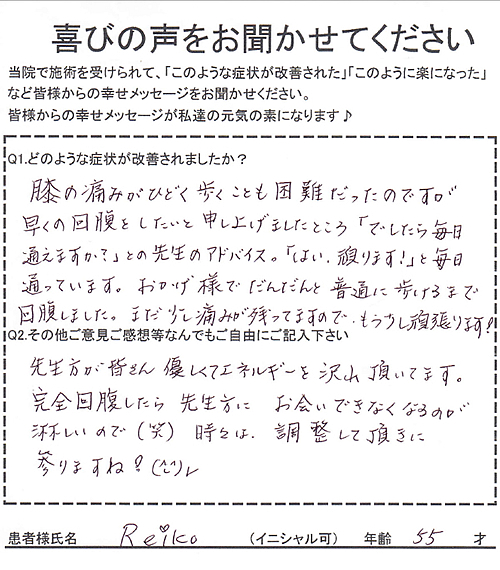 喜びの声をお聞かせてください
当院で施術を受けられて、「このような症状が改善された」「このように楽になった」
など皆様からの幸せメッセージをお聞かせください。
皆様からの幸せメッセージが私達の元気の素になります♪
Q1.どのような症状が改善されましたか？
膝の痛みがひどく歩くことも困難だったのですが
早くの回腹をしたいと申し上げましたところ「でしたら毎日
通えますか？」との先生のアドバイス。「はい、頑ります!」と毎日
通っています。おかげ様でだんだんと普通に歩けるまで
回腹しました。まだ少し痛みが残ってますので、もう少し頑張ります!
Q2.その他ご意見ご感想等なんでもご自由にご記入下さい
先生方が皆さん優しくてエネルギーを沢山頂いてます。
完全回腹したら先生方に お会いできなくなるのが
淋しいので(笑)時々は、調整して頂きに
参りますね？(^^)
患者様氏名 Reiko （イニシャル可） 年齢 55 才